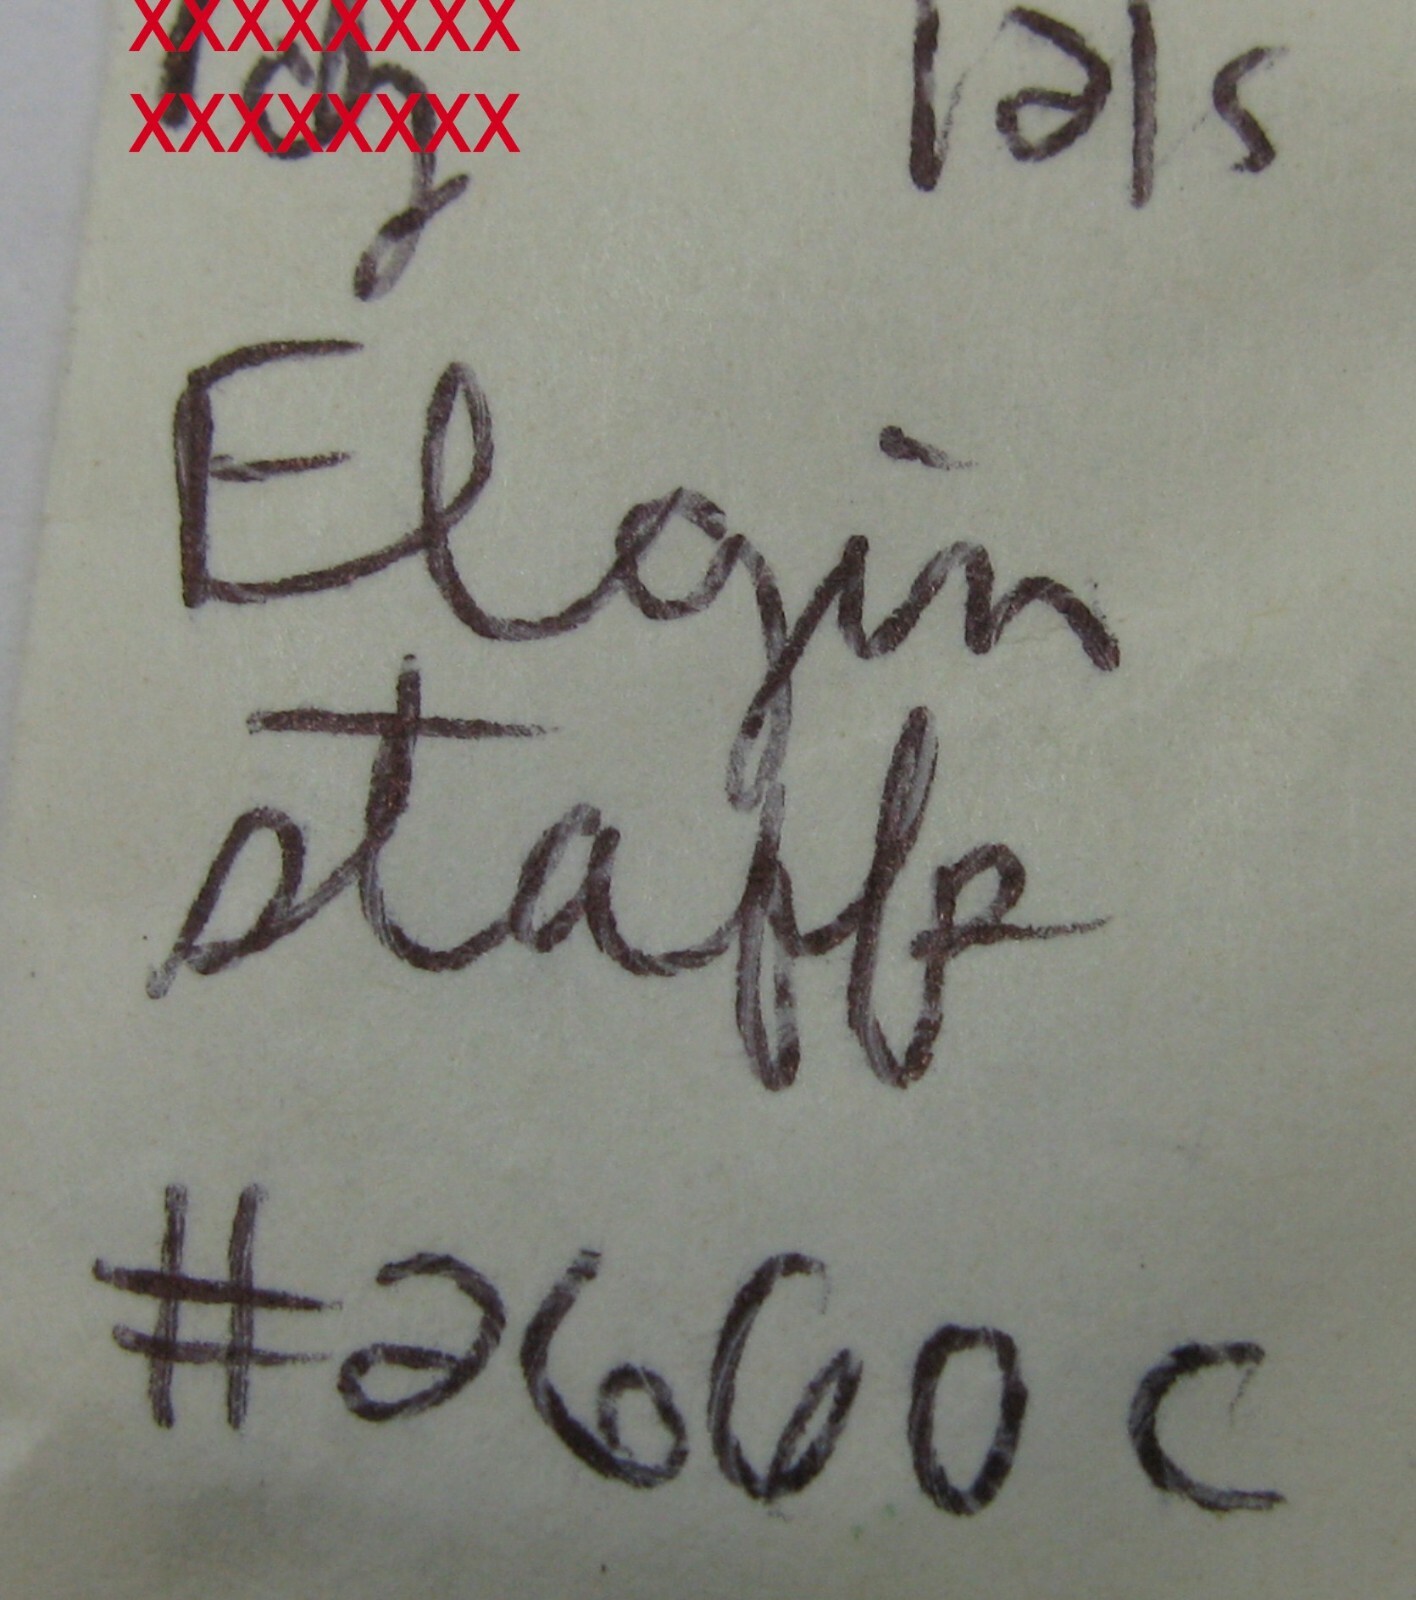 XXXXXXXX 12/5
XXXXXXXX
Elgin
staff
#2660 C